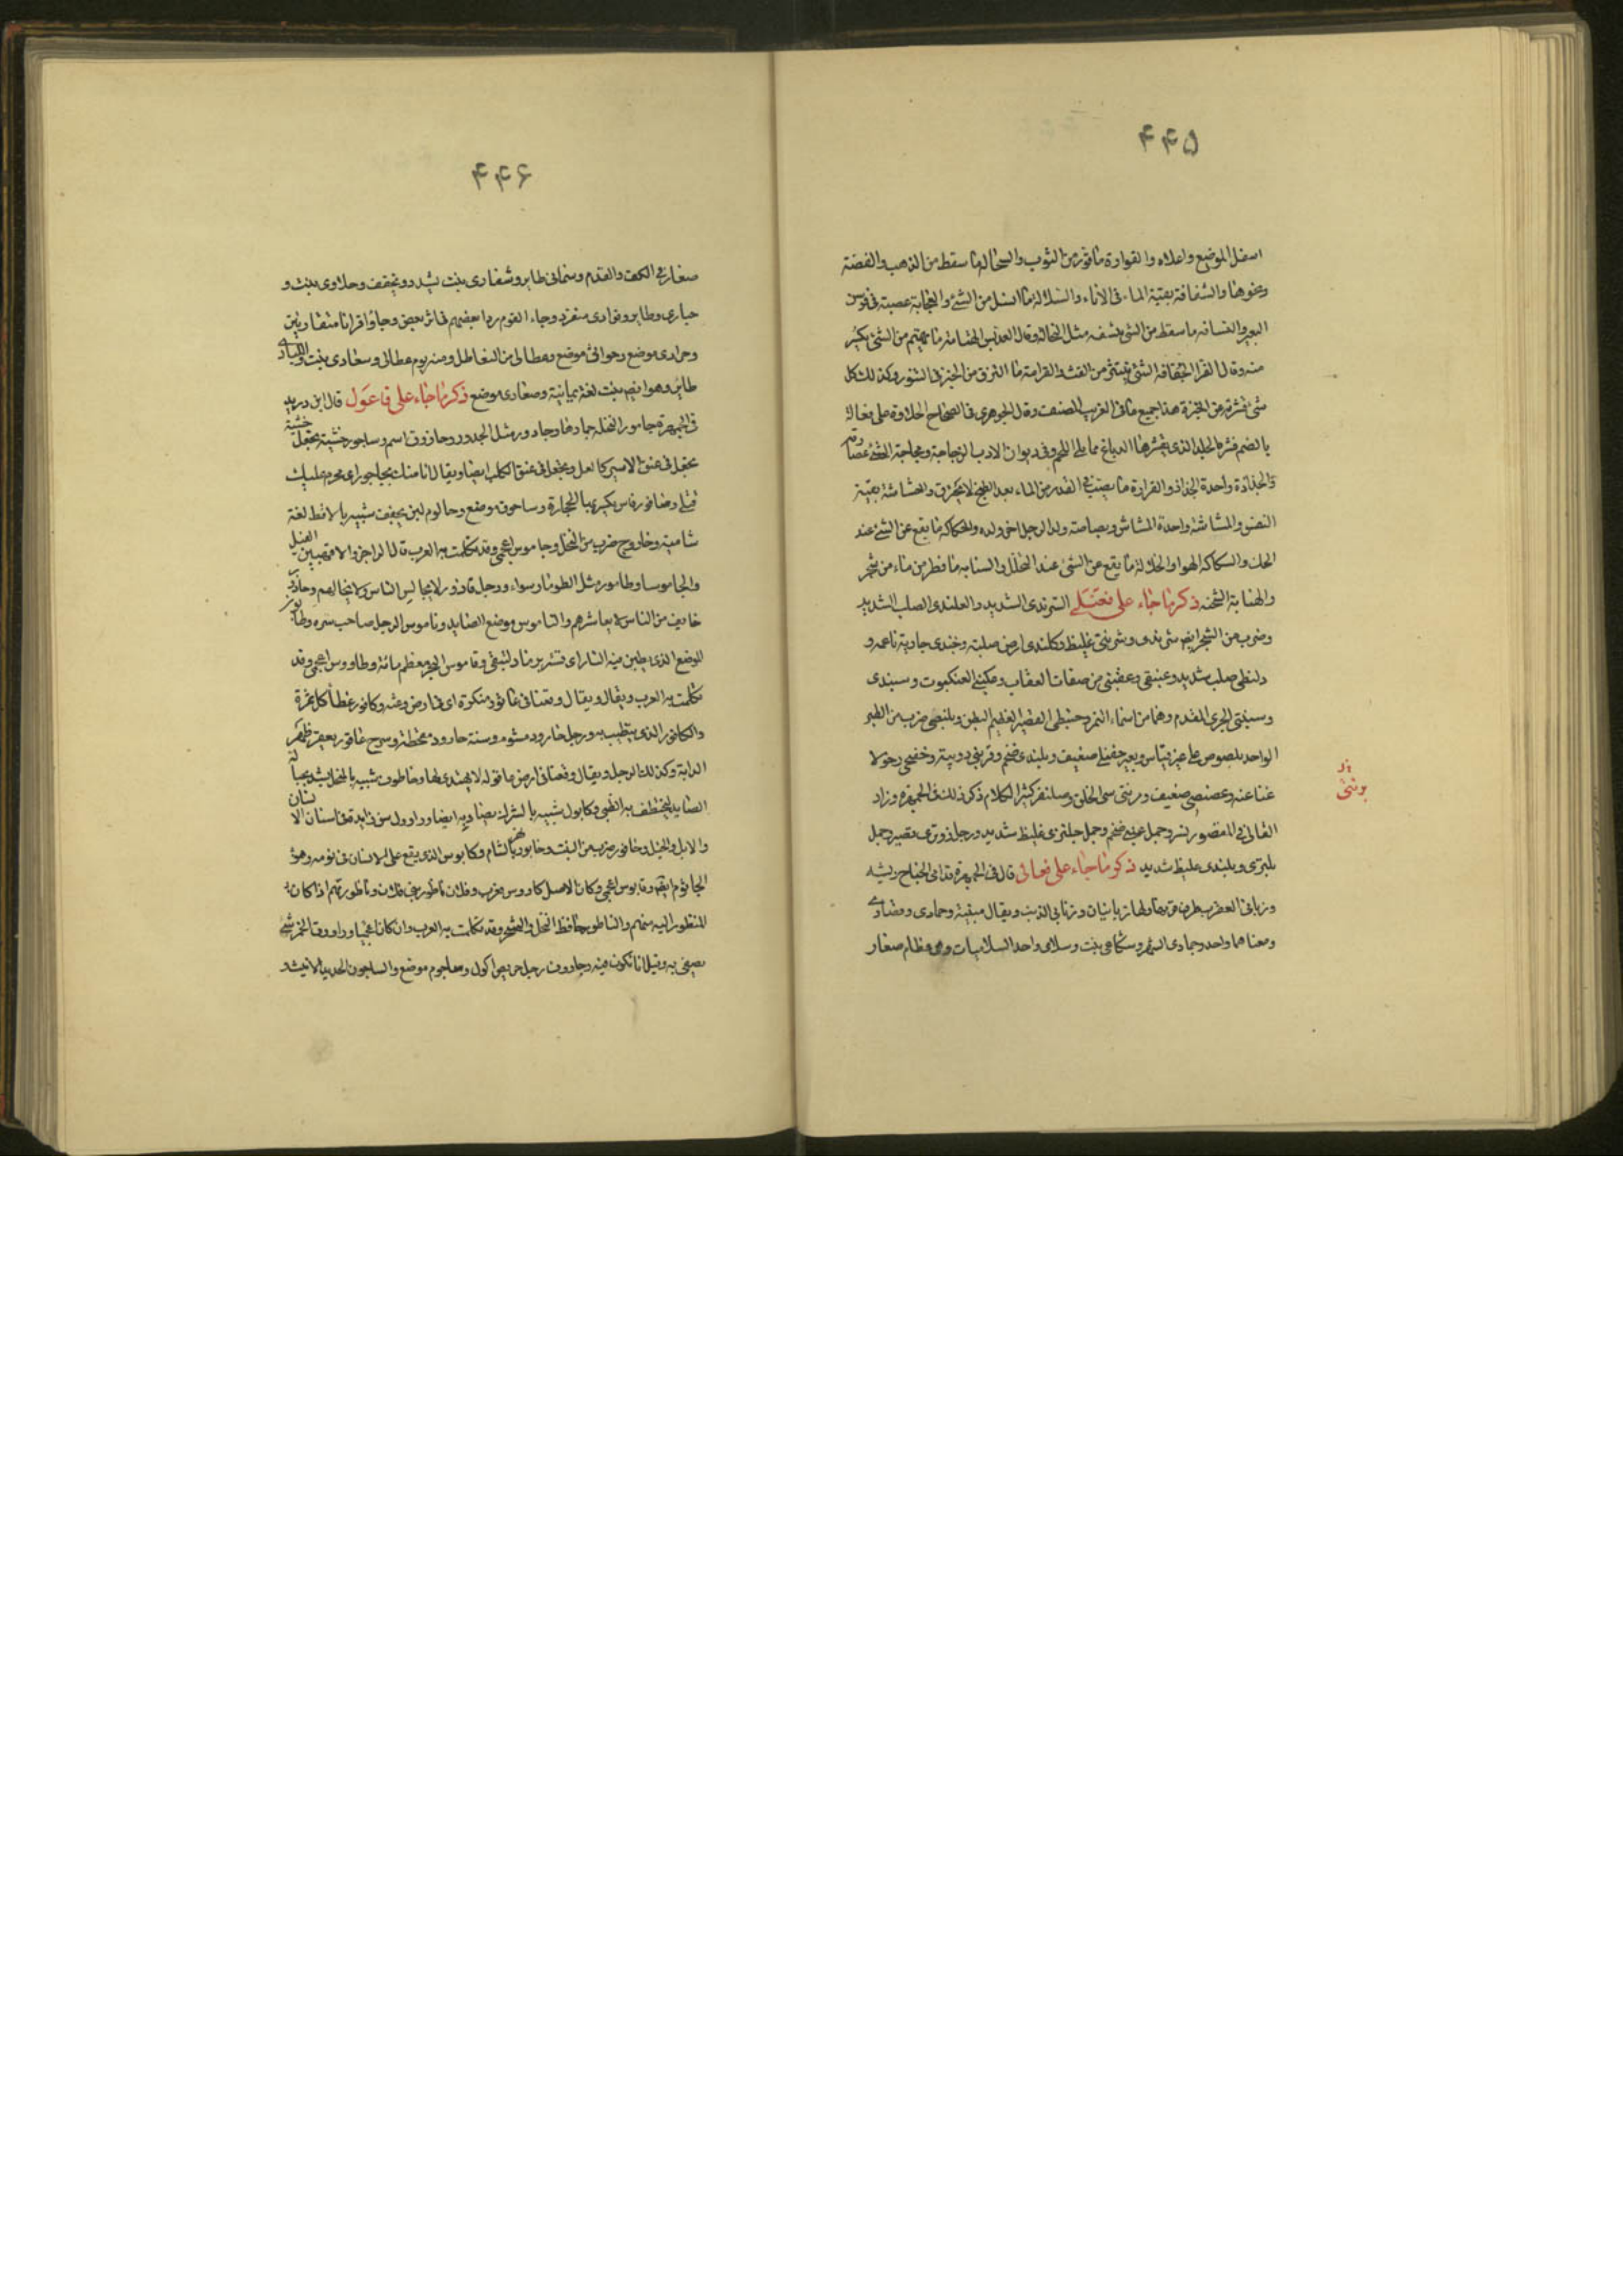 ۴۴۵
اسفل الموضع واعلاه والقوارة ما قور من الثوب والسحالة ما سقط من الذهب والفضة
ونحوها والشفافة بقية الماء فى الاناء والسلالة ما انسل من الشئ والعجاية عصبة فى فرسن
البعير والغسافه ما سقط من الشئ مثل النخالة وقال العدبس الهشامة ما تهشم من الشئ يكسر
منه وقال الفرا الشئ ينتثر من القت والقرامة ما التزق من الخبز فى التنور وكذلك كل
شئ قشرته عن الخبزة هذا جميع ما فى الغريب المصنف وقال الجوهرى فى الصحاح الحلاوة على فعالة
بالضم قشرة الجلد الذى يقشرها الدباغ مما يلى اللحم وفى ديوان الادب الزجاجة ومجاجة الشئ عصارته
والجذاذة واحدة الجذاذ والقرارة ما يصب فى القدر من الماء بعد الطبخ لا يحترق والحشاشة بقية
النفس والمشاشة واحدة المشاش وصاصة ولد الرجل اخر ولده والحكاكة ما يقع عن الشئ عند
الحك والسكاكة الهوا والخلالة ما يقع عن الشئ عند التخلل
والهنانة الشحمة ذكر ما جاء على فعنلى السرندى الشديد والعلندى الصلب الشديد
وضرب من الشجر ايضا شرندى وشرنتى غليظ وكلندى ارض صلبة وخبندى جارية ناعمة و
دلنظى صلب شديد وعبنقى وعقبنى من صفات العقاب وعكنبى العنكبوت وسبندى
وسبنتى الجرى المقدم وهما من اسماء النمر وحبنطى القصير العظيم البطن وبلنصى ضرب من الطير
الواحد بلصوص على غير قياس وبعير حفنى ضعيف وبلندى ضخم وقرنبى دويبة وخفنجى رخو لا
غنا عنده وعصنصى ضعيف وزونتى سئ الخلق وصلنفى كثير الكلام ذكر ذلك فى الجمهرة وزاد
القالى فى المقصور نسر وجمل عبنى ضخم وجمل جلنزى غليظ شديد ورجل زونزى قصير وجمل
بلنزى وبلندى غليظ شديد ذكر ما جاء على فعالى قال فى الجمهرة قدامى الجناح ريشه
وزبانى العقرب طرف قرنها ولها زبانيان وذنابى الذنب ويقال مبنية وحمادى وقصارى
ومعناهما واحد وجمادى الشهر وشكاعى نبت وسلامى واحد السلاميات وهى عظام صغار
۴۴۶
صغار فى الكف والقدم وسمانى طاير وشقارى نبت يشدد ويخفف وحلاوى نبت و
حبارى وطاير وفرادى منفرد وجاء القوم ردا بعضهم فى اثر بعض وجاؤا قرانا متقارنين
وحرادى موضع وحوالى موضع وعظالى من التعاظل ومنه يوم عظالى وسعادى نبت واللبادى
طاير وهو ايضا نبت لغة يمانية وصعادى موضع ذكر ما جاء على فاعول قال ابن دريد
فى الجمهرة جامور النخلة جمارها وجادور مثل الجدور وحازوق اسم وساجور خشبة تجعل
تجعل فى عنق الاسير كالغل وتجعل فى عنق الكلب ايضا ويقال انا منك بحاجور اى محرم عليك
قتلى وصاقور فاس يكسر بها الحجارة وساحوق موضع وحالوم لبن يجفف شبيه بالاقط لغة
شامية وخاروج ضرب من النخل وجاموس اعجمى وقد تكلمت به العرب قال الراجز والاقهبين الفيل
والجاموسا وطامور مثل الطومار سواء ورجل قاذور لا يجالس الناس ولا يخالطهم وحاذور
خايف من الناس لا يعاشرهم والناموس موضع الصايد وناموس الرجل صاحب سره وطابور
الموضع الذى تطبن فيه النار اى تستر برماد لتبقى وقاموس البحر معظم مائه وطاووس اعجمى وقد
تكلمت به العرب ويقال ويقال وقعنا فى عاثور منكرة اى فى ارض وعثه وكافور غطا كل ثمرة
والكافور الذى يتطيب به ورجل جارود مشوم وسنة جارود مقحطة وسرج عاقور يعقر ظهر
الدابة وكذلك الرجل ويقال وقعنا فى ارض عاقولة لا يهتدى لها وخاطوف شبيه بالمنجل يشد بحبالة
الصايد ليختطف به الظبى وكابول شبيه بالشرك يصاد به ايضا وراوول سن زايدة فى اسنان الانسان
والابل والخيل وخافور ضرب من النبت وخابور نهر بالشام وكابوس الذى يقع على الانسان فى نومه وهو
الجاثوم ايضا وقابوس اعجمى وكان الاصل كاووس فعرب وفلان ناظور بنى فلان وناظورتهم اذا كان
المنظور اليه منهم والناطور حافظ النخل والشجر وقد تكلمت به العرب وان كان اعجميا وراووق الخمر شئ
يصفى به وقيل انا تكون فيه وجاروف رجل حريص اكول وساجوم موضع والساجون الحديد الانيث و